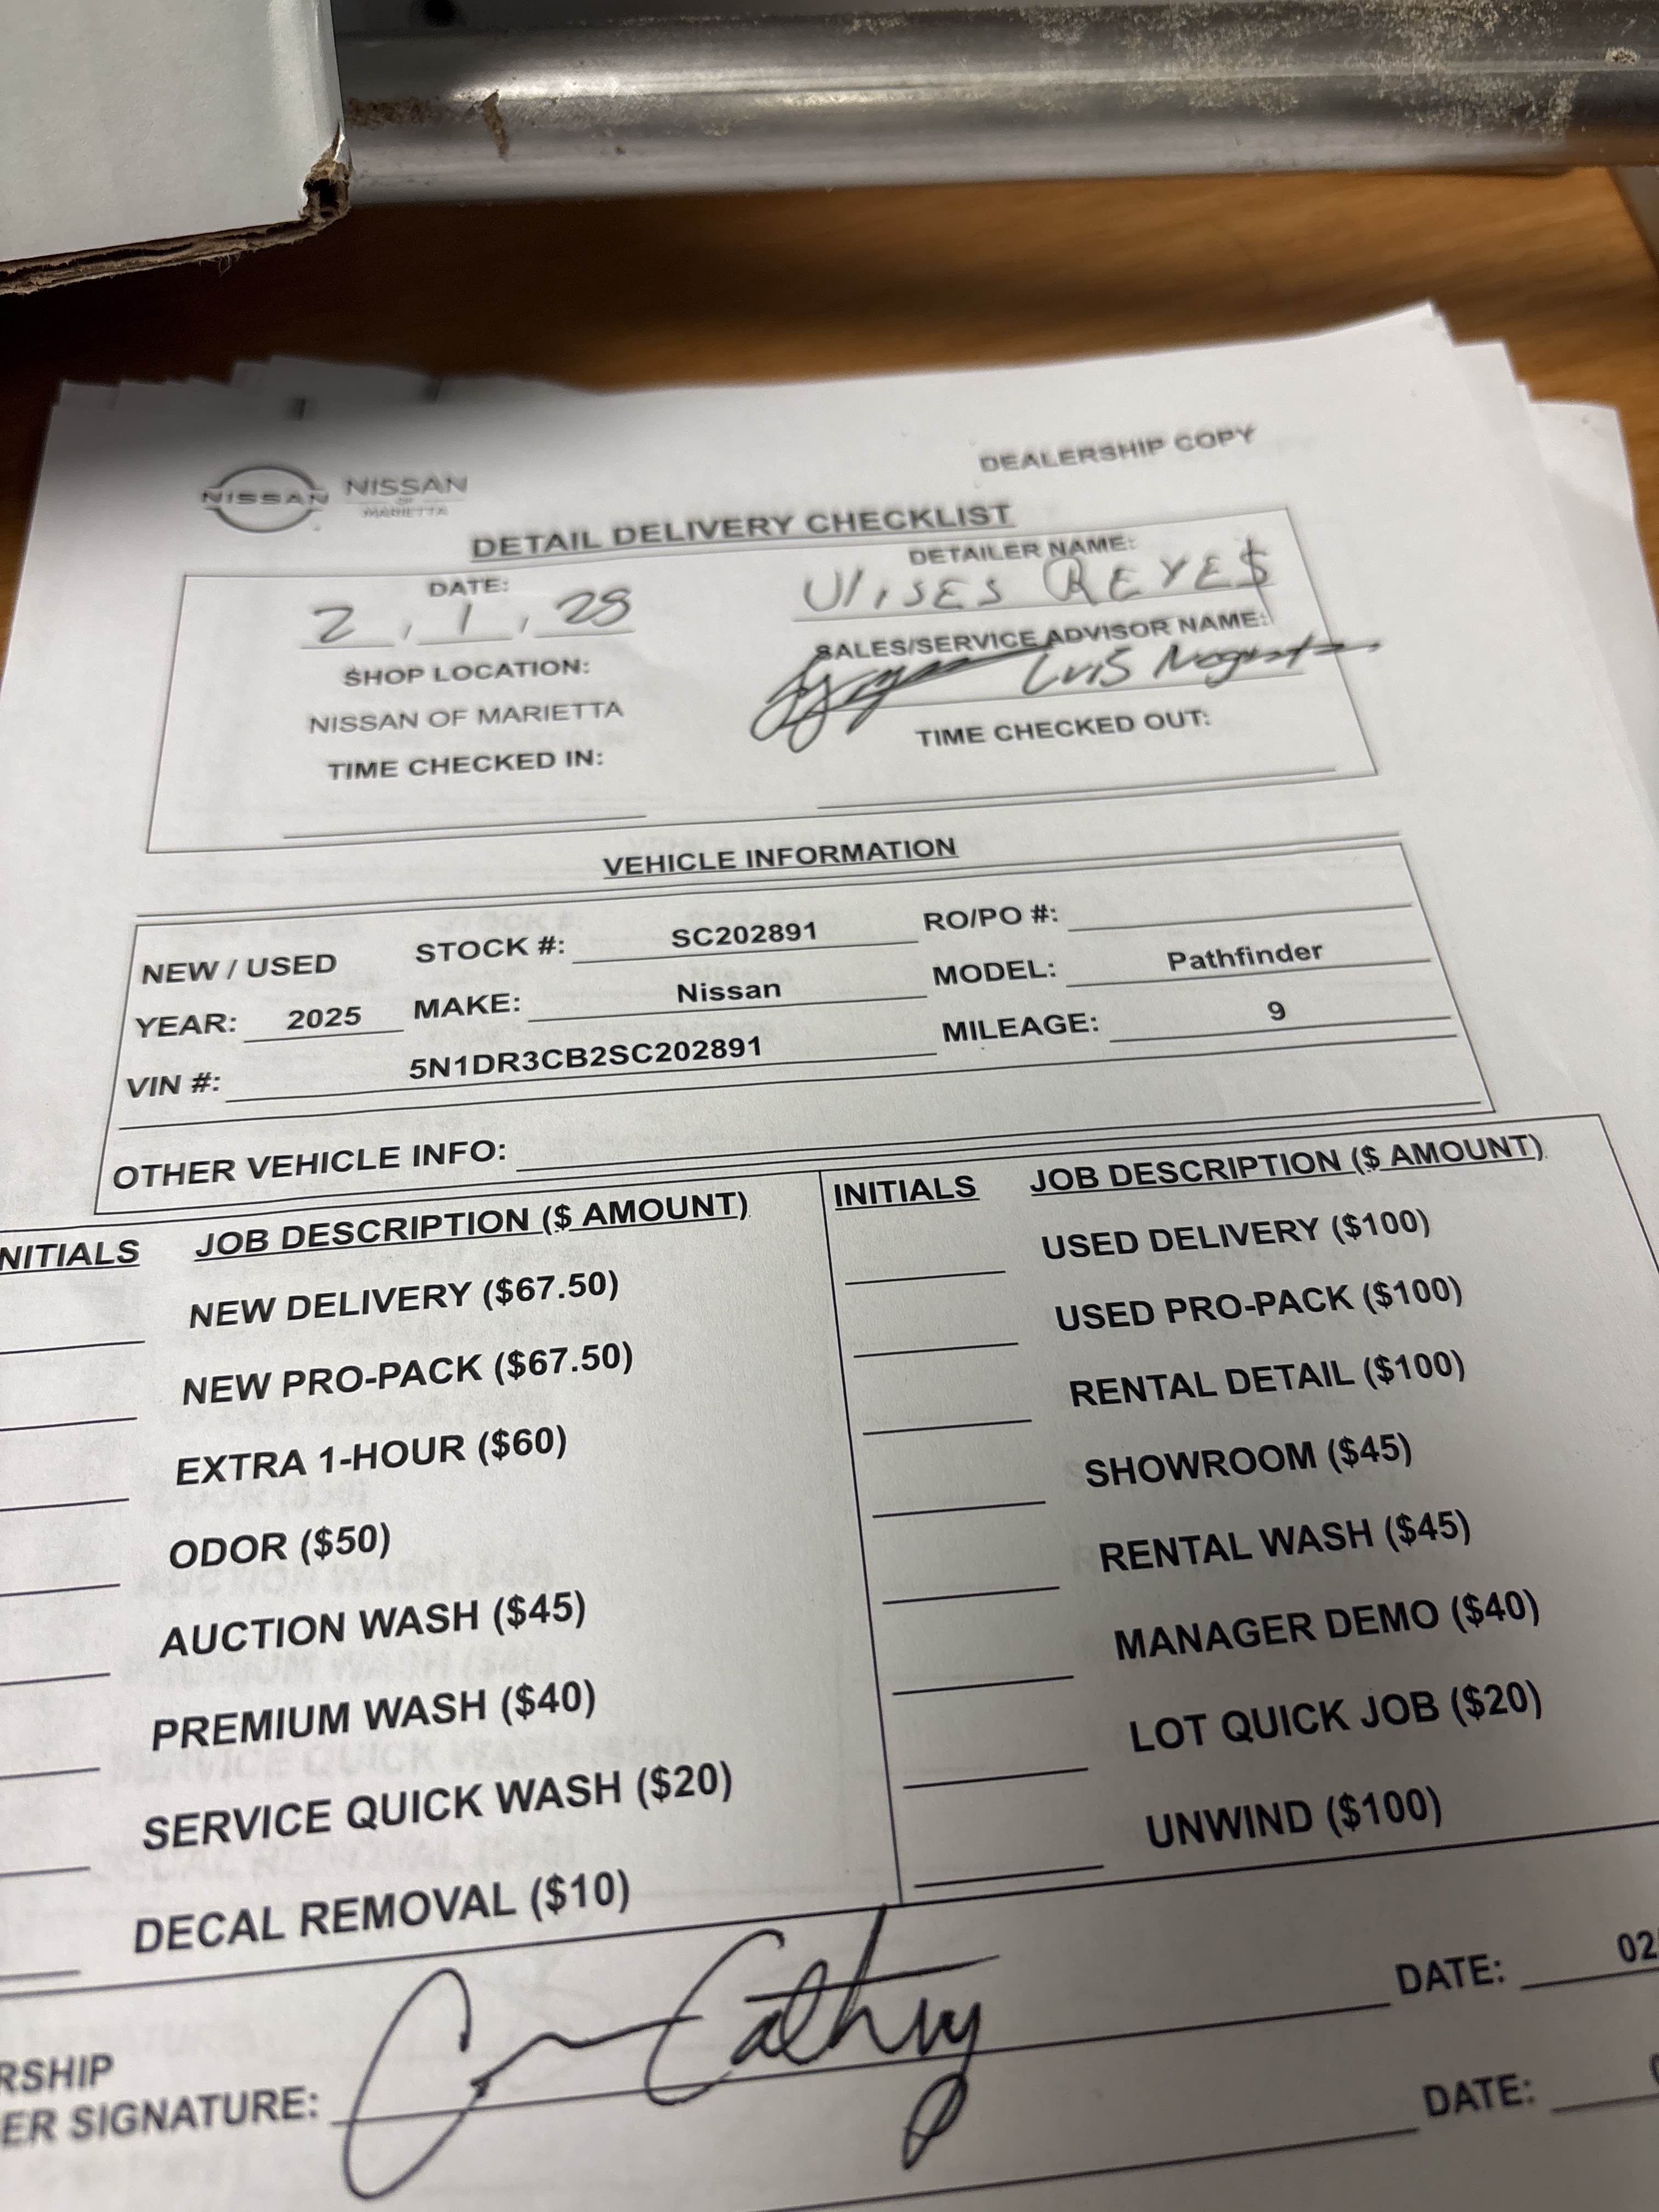 DEALERSHIP COPY
NISSAN NISSAN
OF
MARIETTA
DETAIL DELIVERY CHECKLIST
DATE: DETAILER NAME:
2, 1, 28 Ulises REYE$
SHOP LOCATION: SALES/SERVICE ADVISOR NAME:
NISSAN OF MARIETTA Luis
TIME CHECKED IN: TIME CHECKED OUT:
VEHICLE INFORMATION
NEW / USED STOCK #: SC202891 RO/PO #:
YEAR: 2025 MAKE: Nissan MODEL: Pathfinder
VIN #: 5N1DR3CB2SC202891 MILEAGE: 9
OTHER VEHICLE INFO:
NITIALS JOB DESCRIPTION ($ AMOUNT) INITIALS JOB DESCRIPTION ($ AMOUNT)
NEW DELIVERY ($67.50) USED DELIVERY ($100)
NEW PRO-PACK ($67.50) USED PRO-PACK ($100)
EXTRA 1-HOUR ($60) RENTAL DETAIL ($100)
ODOR ($50) SHOWROOM ($45)
AUCTION WASH ($45) RENTAL WASH ($45)
PREMIUM WASH ($40) MANAGER DEMO ($40)
SERVICE QUICK WASH ($20) LOT QUICK JOB ($20)
DECAL REMOVAL ($10) UNWIND ($100)
DATE: 02
RSHIP
ER SIGNATURE: DATE: